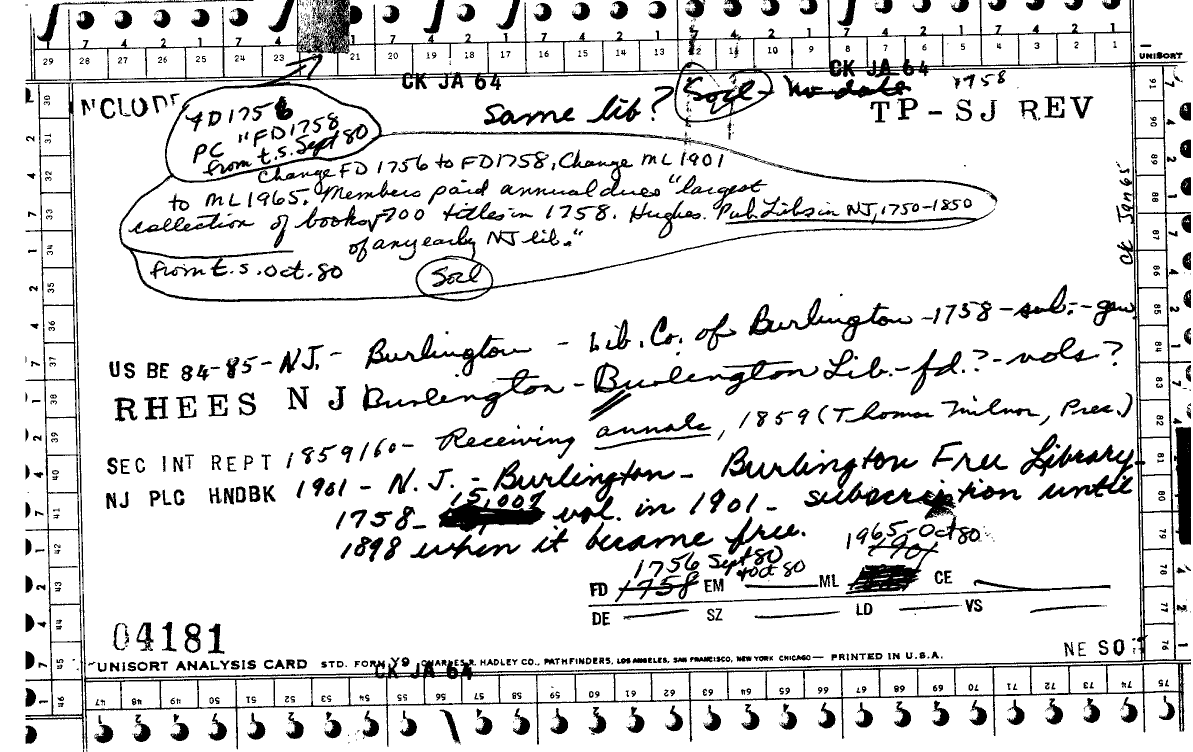 7 4 2 1 7 4 2 1 7 4 2 1 7 4 2 1 7 4 2 1 7 4 2 1
29 28 26 25 24 23 21 20 19 18 17 16 15 14 13 12 11 10 9 8 7 6 5 4 3 2 1
UNISORT
CK JA 64
CK JA 64
Socl - no date 1758
Same lib?
TP-SJ REV
FD 1756
PC "FD1758
from t.s. Sept 80
Change FD 1756 to FD1758, Change ML1901
to ML1965. Members paid annual dues "largest
collection of books, 700 titles in 1758. Hughes. Pub Libs in NJ, 1750-1850
of any early NJ lib."
from t.s. Oct. 80
Socl
CK Jan 65
US BE 84-85-N.J.- Burlington - Lib. Co. of Burlington-1758-sub.-gen
RHEES NJ Burlington-Burlington Lib.-fd.?-vols?
SEC INT REPT 1859/60- Receiving annals, 1859 (Thomas Milnor, Pres.)
NJ PLC HNDBK 1901- N.J.-Burlington- Burlington Free Library-
1758- 15,007 vol. in 1901- subscription until
1898 when it became free.
1965-Oct 80
1901
1756 Sept 80
+Oct 80
FD 1758 EM ML CE
DE SZ LD VS
04181
NE SO
UNISORT ANALYSIS CARD STD. FORM Y9 CHARLES R. HADLEY CO., PATHFINDERS, LOS ANGELES, SAN FRANCISCO, NEW YORK CHICAGO— PRINTED IN U.S.A.
CK JA 64
47 48 49 50 51 52 53 54 55 56 57 58 59 60 61 62 63 64 65 66 67 68 69 70 71 72 73 74 75